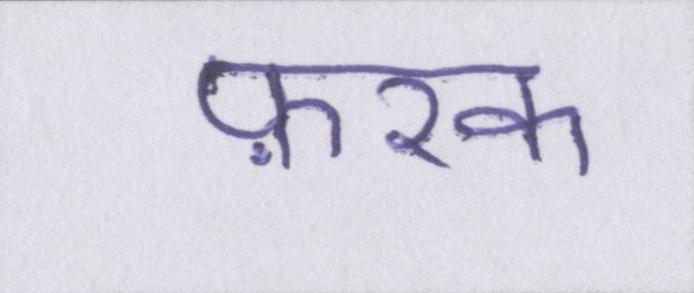 फ़रक